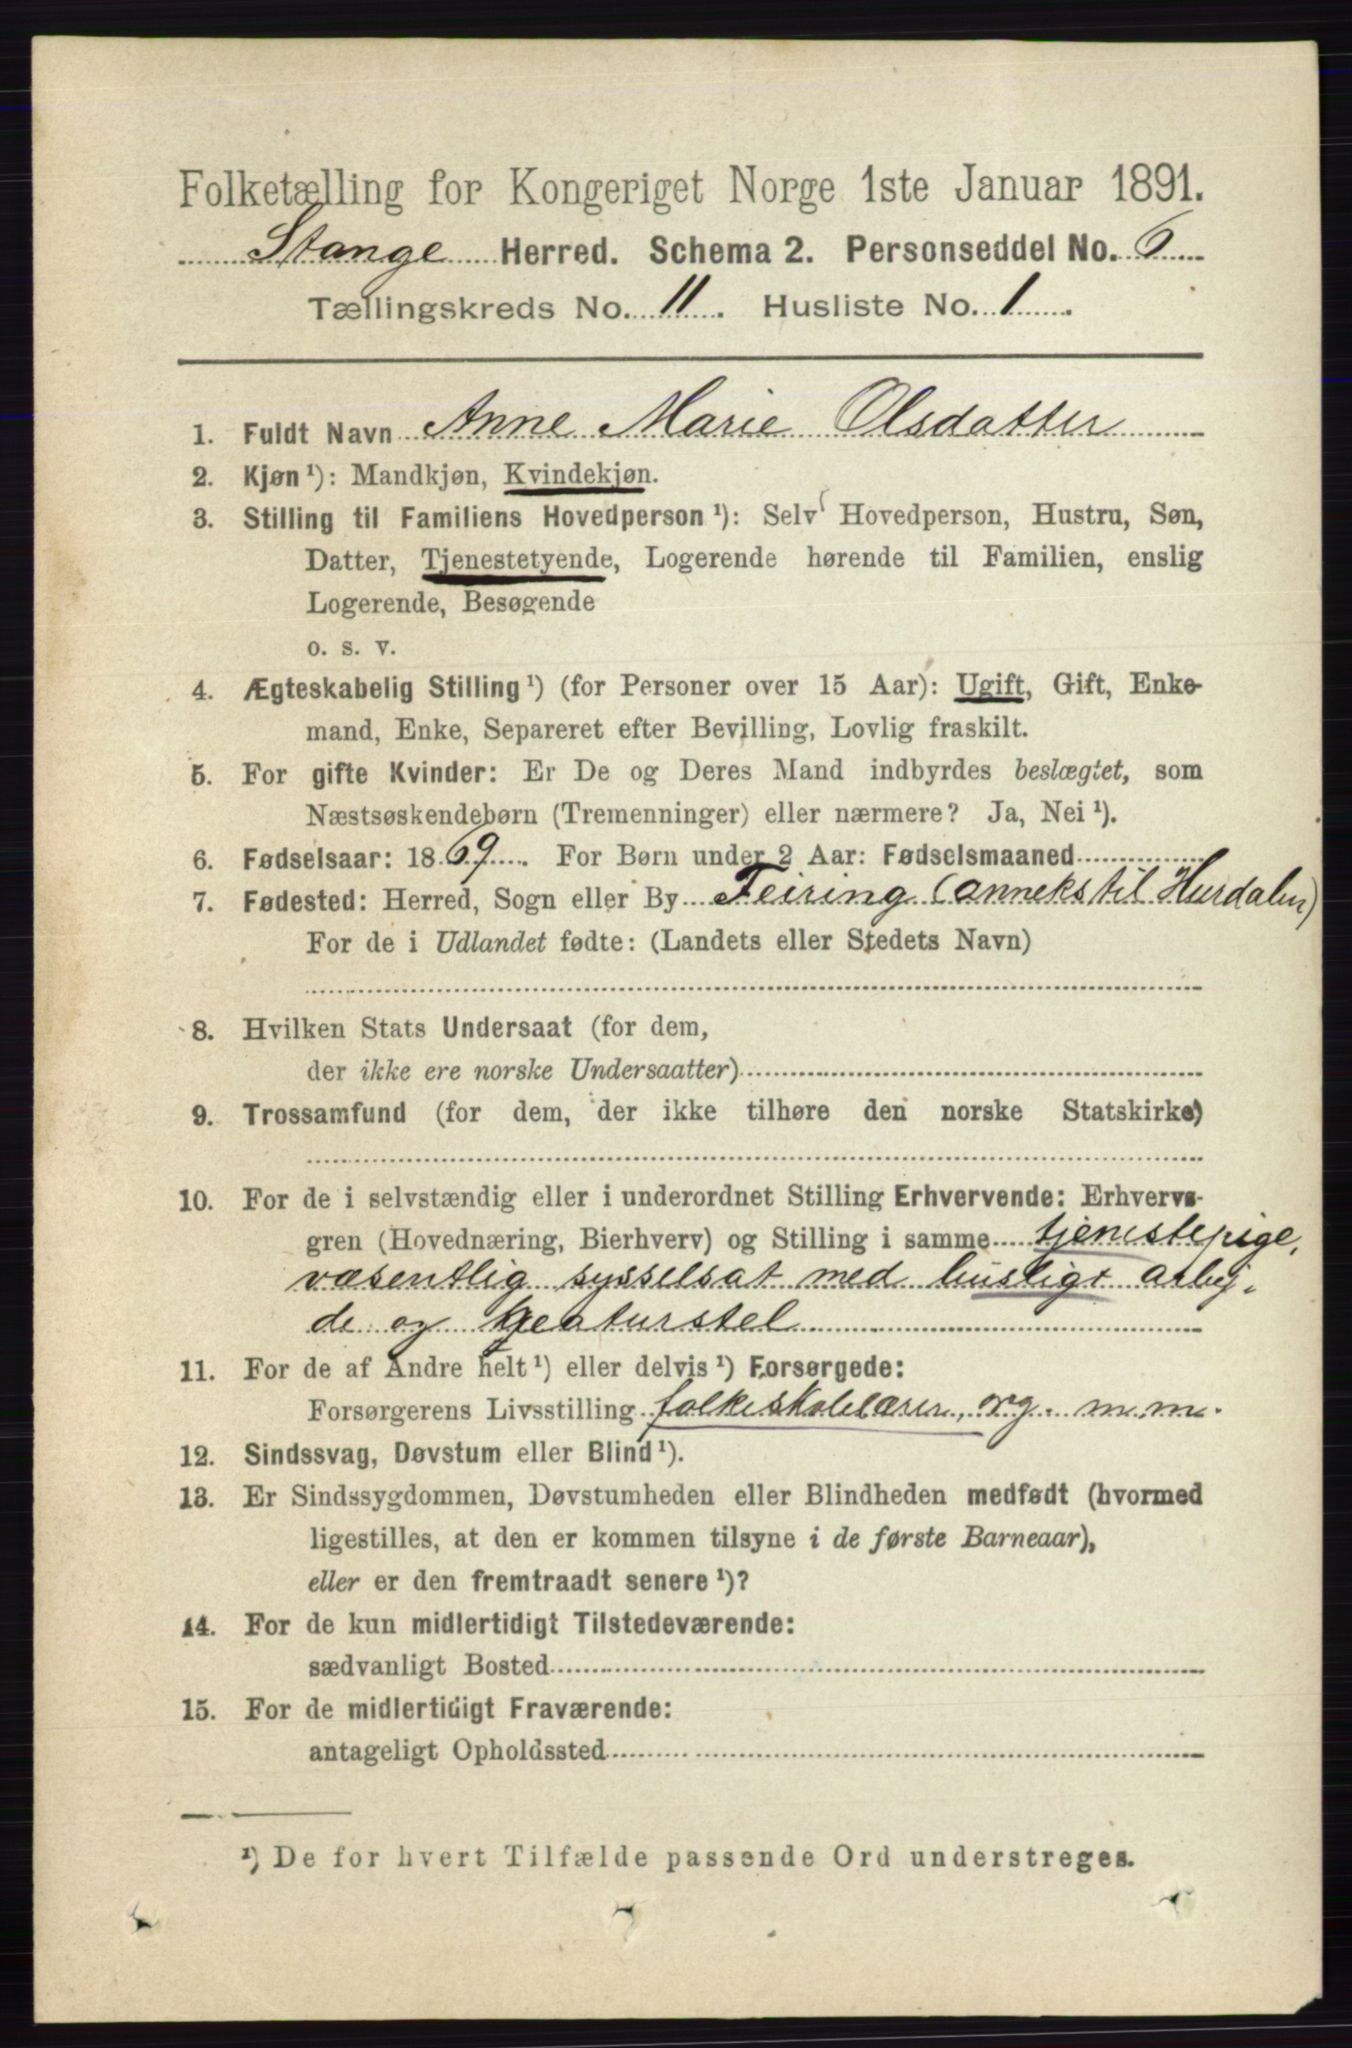 Folketælling for Kongeriget Norge 1ste Januar 1891.
Stange Herred. Schema 2. Personseddel No. 6
Tællingskreds No. 11. Husliste No. 1.
1. Fuldt Navn Anne Marie Olsdatter
2. Kjøn¹): Mandkjøn, Kvindekjøn.
3. Stilling til Familiens Hovedperson¹): Selv Hovedperson, Hustru, Søn,
Datter, Tjenestetyende, Logerende hørende til Familien, enslig
Logerende, Besøgende
o. s. v.
4. Ægteskabelig Stilling¹) (for Personer over 15 Aar): Ugift, Gift, Enke-
mand, Enke, Separeret efter Bevilling, Lovlig fraskilt.
5. For gifte Kvinder: Er De og Deres Mand indbyrdes beslægtet, som
Næstsøskendebørn (Tremenninger) eller nærmere? Ja, Nei¹).
6. Fødselsaar: 1869. For Børn under 2 Aar: Fødselsmaaned
7. Fødested: Herred, Sogn eller By Feiring (anneks til Hurdalen)
For de i Udlandet fødte: (Landets eller Stedets Navn)
8. Hvilken Stats Undersaat (for dem,
der ikke ere norske Undersaatter)
9. Trossamfund (for dem, der ikke tilhøre den norske Statskirke)
10. For de i selvstændig eller i underordnet Stilling Erhvervende: Erhvervs-
gren (Hovednæring, Bierhverv) og Stilling i samme tjenestepige,
væsentlig sysselsat med husligt arbej-
de og kreaturstel
11. For de af Andre helt¹) eller delvis¹) Forsørgede:
Forsørgerens Livsstilling folkeskolelærer, org. m.m.
12. Sindssvag, Døvstum eller Blind¹).
13. Er Sindssygdommen, Døvstumheden eller Blindheden medfødt (hvormed
ligestilles, at den er kommen tilsyne i de første Barneaar),
eller er den fremtraadt senere¹)?
14. For de kun midlertidigt Tilstedeværende:
sædvanligt Bosted
15. For de midlertidigt Fraværende:
antageligt Opholdssted
¹) De for hvert Tilfælde passende Ord understreges.